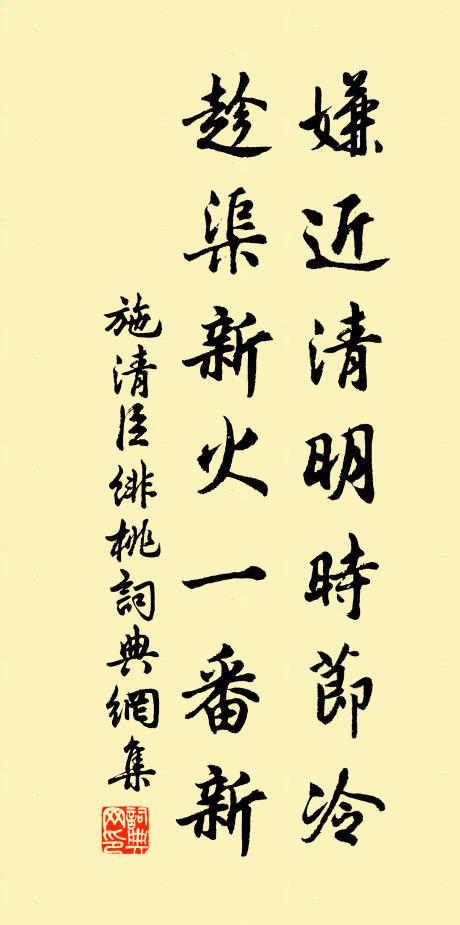 嫌近清明時節冷
趁渠新火一番新
施清臣緋桃詞典網集
詞典網印